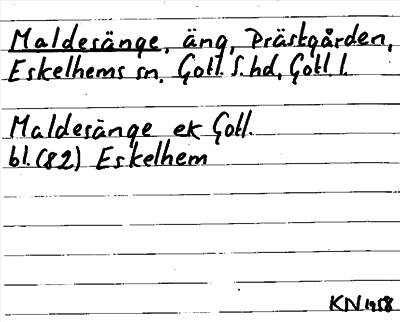 Maldesänge, äng, Prästgården,
Eskelhems sn, Gotl. S. hd, Gotl l.
Maldesänge ek Gotl.
bl. (82) Eskelhem
KN 1958